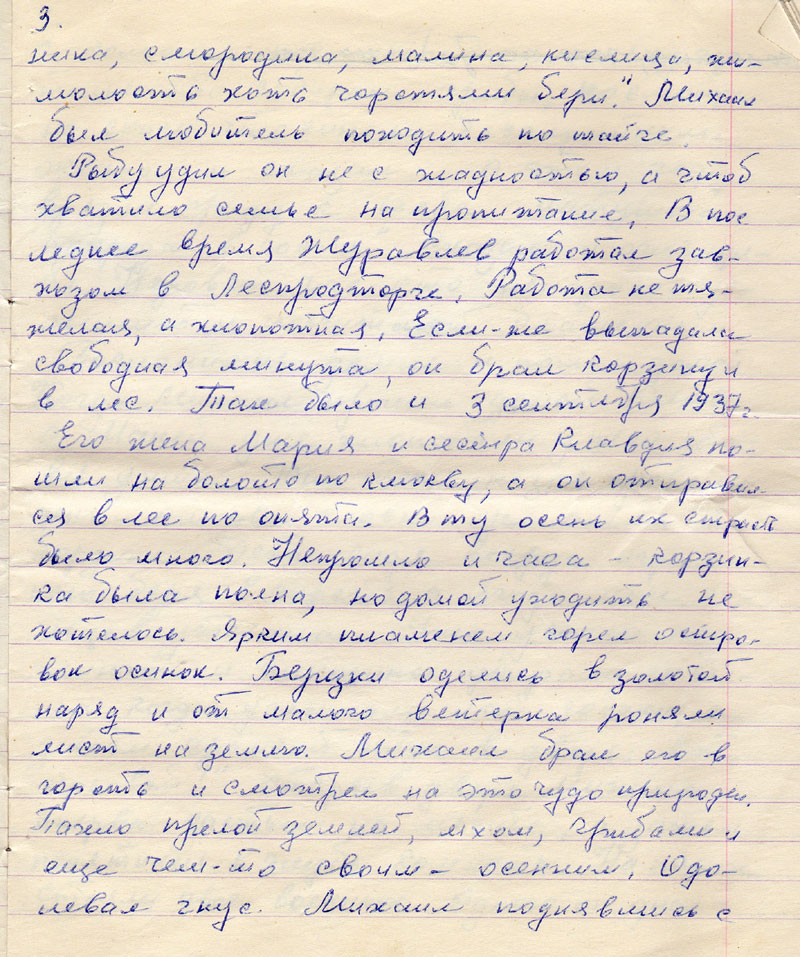 3.
ника, смородина, малина, кислица, жи-
молость хоть горстями бери." Михаил
был любитель походить по тайге.
Рыбу удил он не с жадностью, а чтоб
хватило семье на пропитание. В пос
леднее время Журавлев работал зав-
хозом в Леспродторге. Работа не тя-
желая, а хлопотная. Если-же выпадала
свободная минута, он брал корзину и
в лес. Так было и 3 сентября 1937г.
Его жена Мария и сестра Клавдия по-
шли на болото по клюкву, а он отправил
ся в лес по опята. В ту осень их страсть
было много. Непрошло и часа - корзин-
ка была полна, но домой уходить не
хотелось. Ярким пламенем горел остро-
вок осинок. Березки оделись в золотой
наряд и от малого ветерка роняли
лист на землю. Михаил брал его в
горсть и смотрел на это чудо природы.
Пахло прелой землей, мхом, грибами и
еще чем-то своим - осенним. Одо-
левал гнус. Михаил поднявшись с